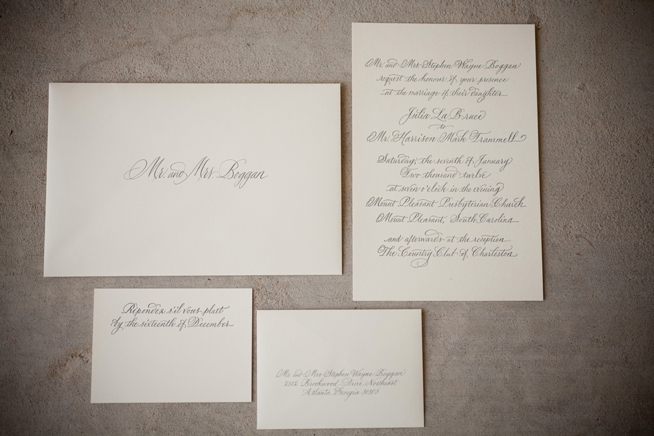 Mr. and Mrs. Boggan
Mr. and Mrs. Stephen Wayne Boggan
request the honour of your presence
at the marriage of their daughter
Julia La Bruce
to
Mr. Harrison Mark Trammell
Saturday, the seventh of January
Two thousand twelve
at seven o'clock in the evening
Mount Pleasant Presbyterian Church
Mount Pleasant, South Carolina
and afterwards at the reception
The Country Club of Charleston
Répondez s'il vous plaît
by the sixteenth of December
Mr. and Mrs. Stephen Wayne Boggan
Brookwood Drive Northeast
Atlanta, Georgia